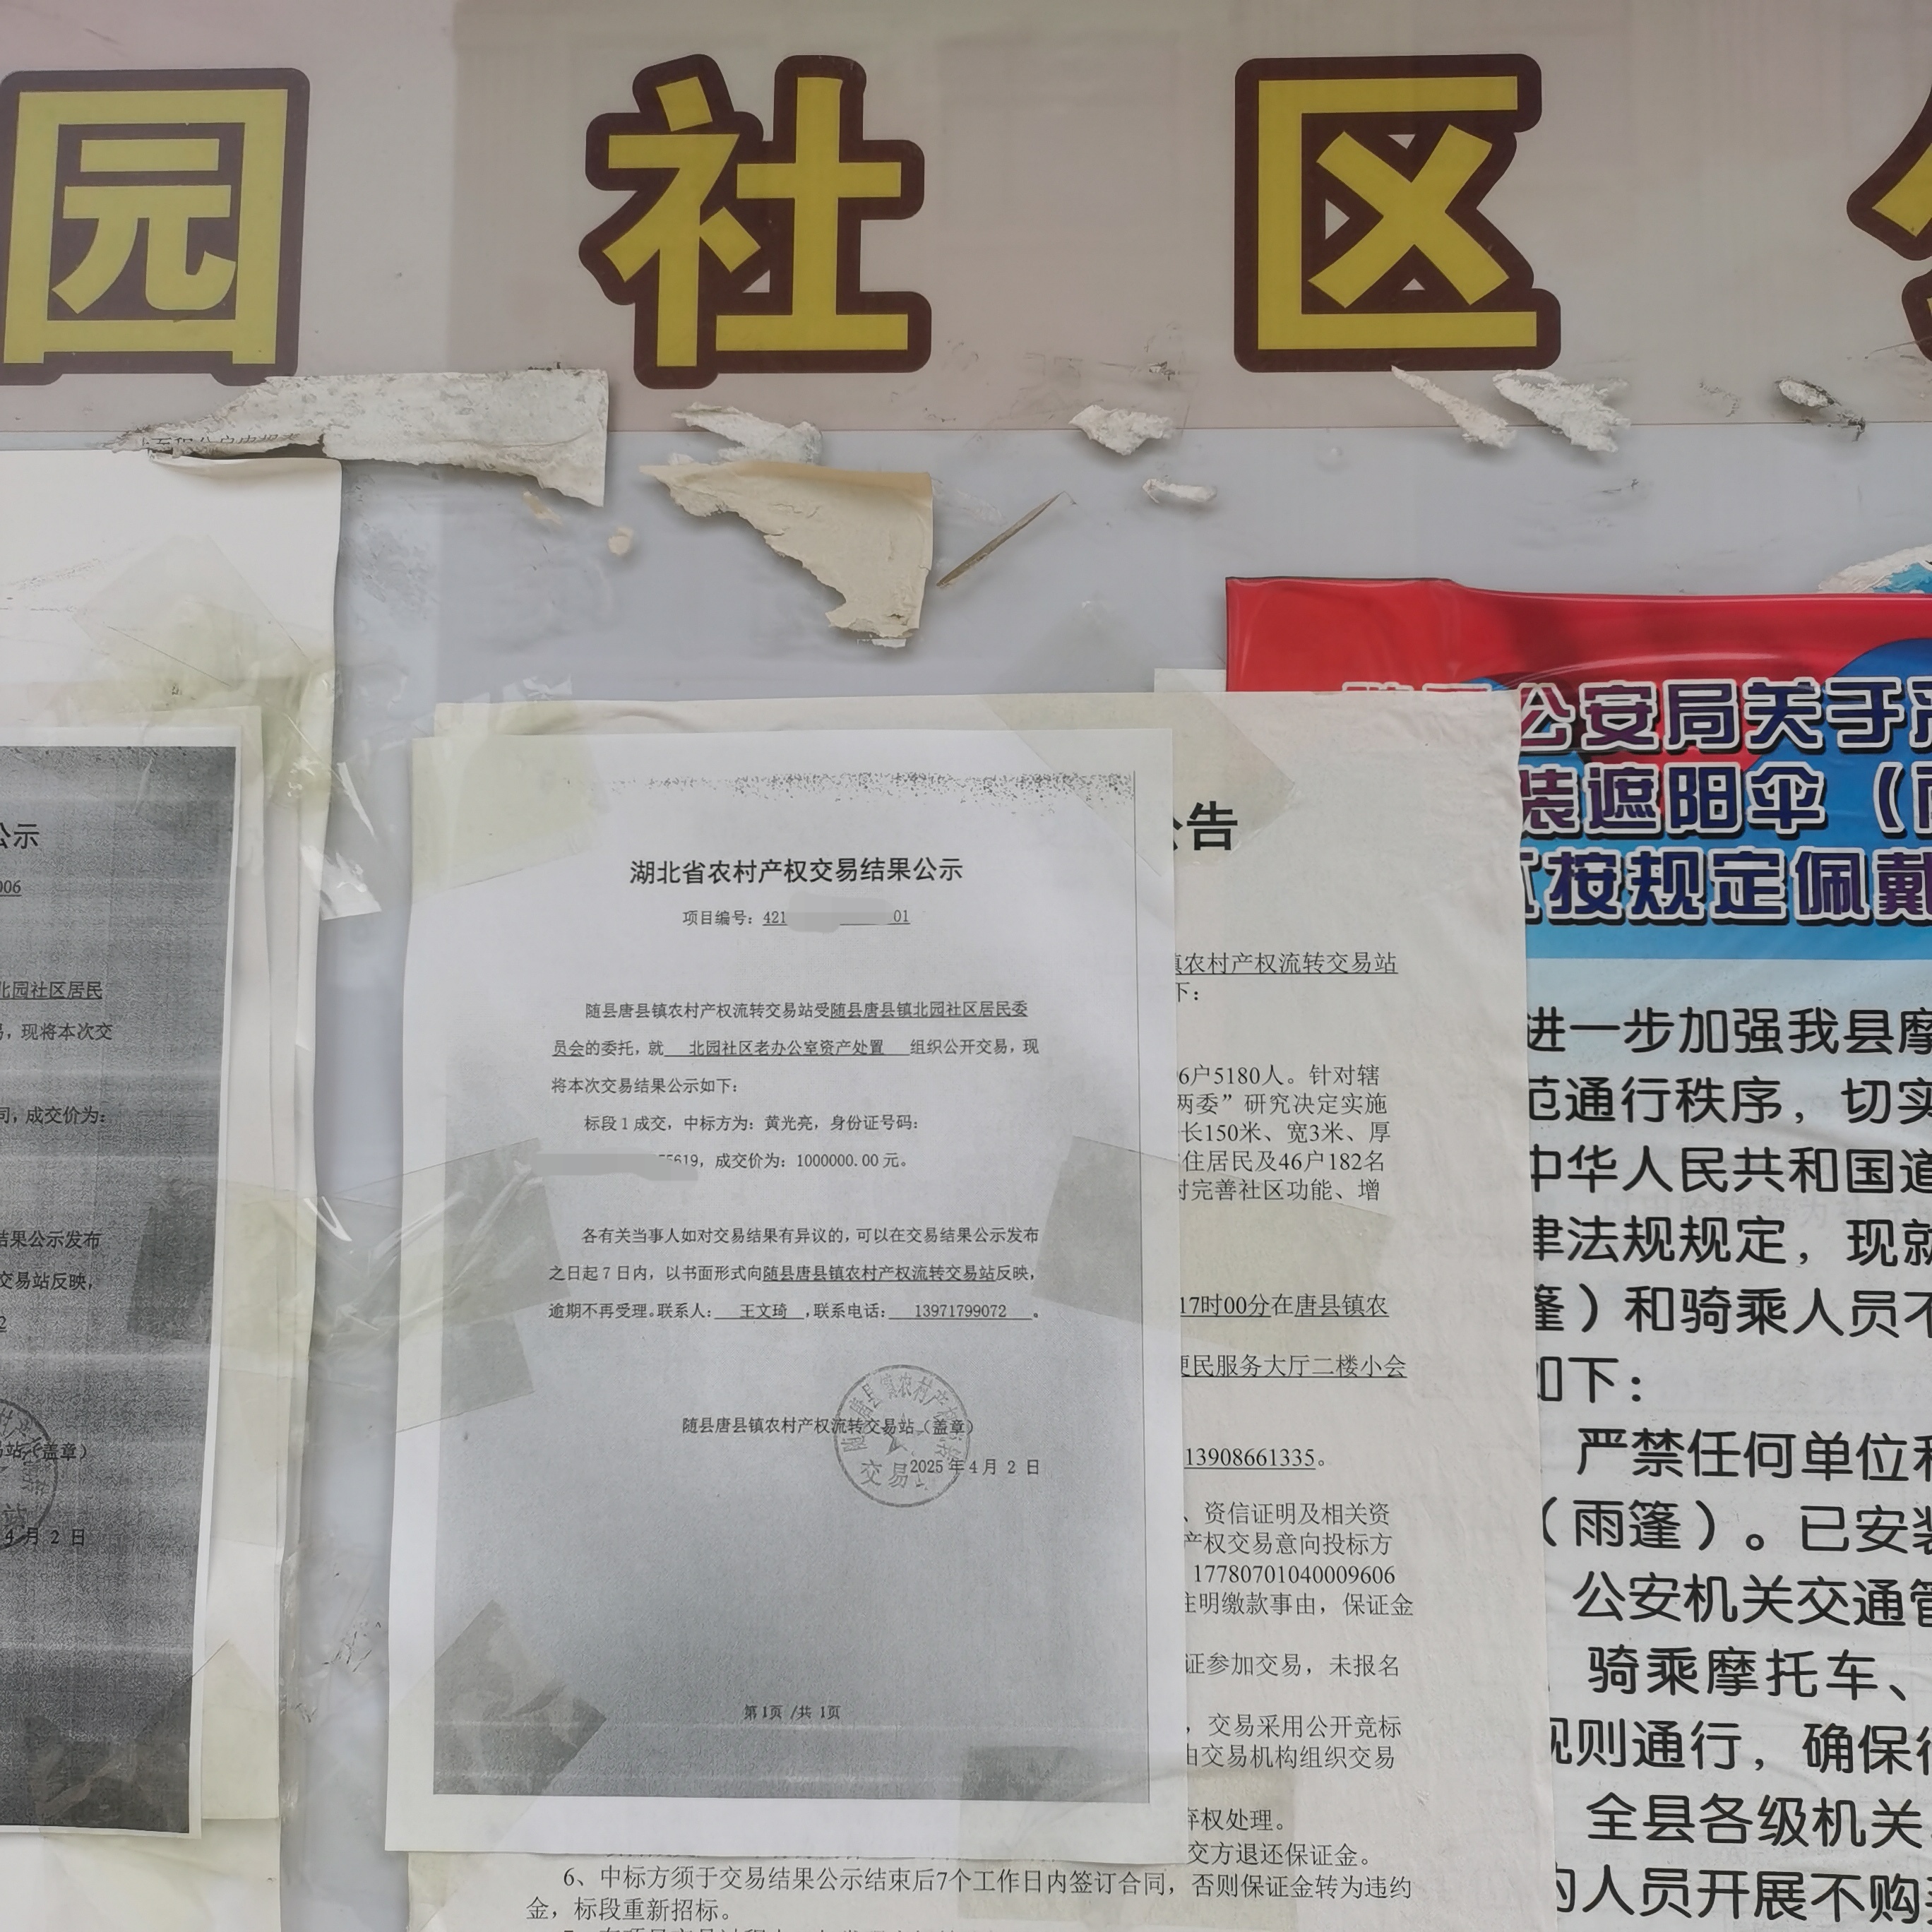 园 社 区
公示
006
北园社区居民
，现将本次交
司，成交价为：
结果公示发布
交易站反映，
2
易站（盖章）
4 月 2 日
湖北省农村产权交易结果公示
项目编号：421 01
随县唐县镇农村产权流转交易站受随县唐县镇北园社区居民委
员会的委托，就 北园社区老办公室资产处置 组织公开交易，现
将本次交易结果公示如下：
标段 1 成交，中标方为：黄光亮，身份证号码：
5619，成交价为：1000000.00 元。
各有关当事人如对交易结果有异议的，可以在交易结果公示发布
之日起 7 日内，以书面形式向随县唐县镇农村产权流转交易站反映，
逾期不再受理。联系人： 王文琦 ，联系电话： 13971799072 。
随县唐县镇农村产权流转交易站（盖章）
2025 年 4 月 2 日
第1页 /共 1页
公告
镇农村产权流转交易站
下：
6户5180人。针对辖
两委”研究决定实施
长150米、宽3米、厚
住居民及46户182名
完善社区功能、增
17时00分在唐县镇农
便民服务大厅二楼小会
13908661335。
、资信证明及相关资
产权交易意向投标方
17780701040009606
注明缴款事由，保证金
证参加交易，未报名
，交易采用公开竞标
由交易机构组织交易
弃权处理。
交方退还保证金。
6、中标方须于交易结果公示结束后7个工作日内签订合同，否则保证金转为违约
金，标段重新招标。
公安局关于
装遮阳伞（
按规定佩戴
进一步加强我县摩
范通行秩序，切实
中华人民共和国道
律法规规定，现就
篷）和骑乘人员不
如下：
严禁任何单位和
（雨篷）。已安装
公安机关交通管
骑乘摩托车、
规则通行，确保
全县各级机关
的人员开展不购